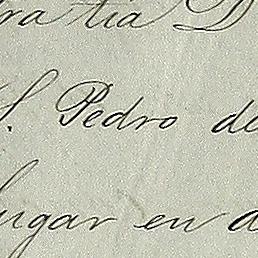 ratia D
S. Pedro de
lugar en d